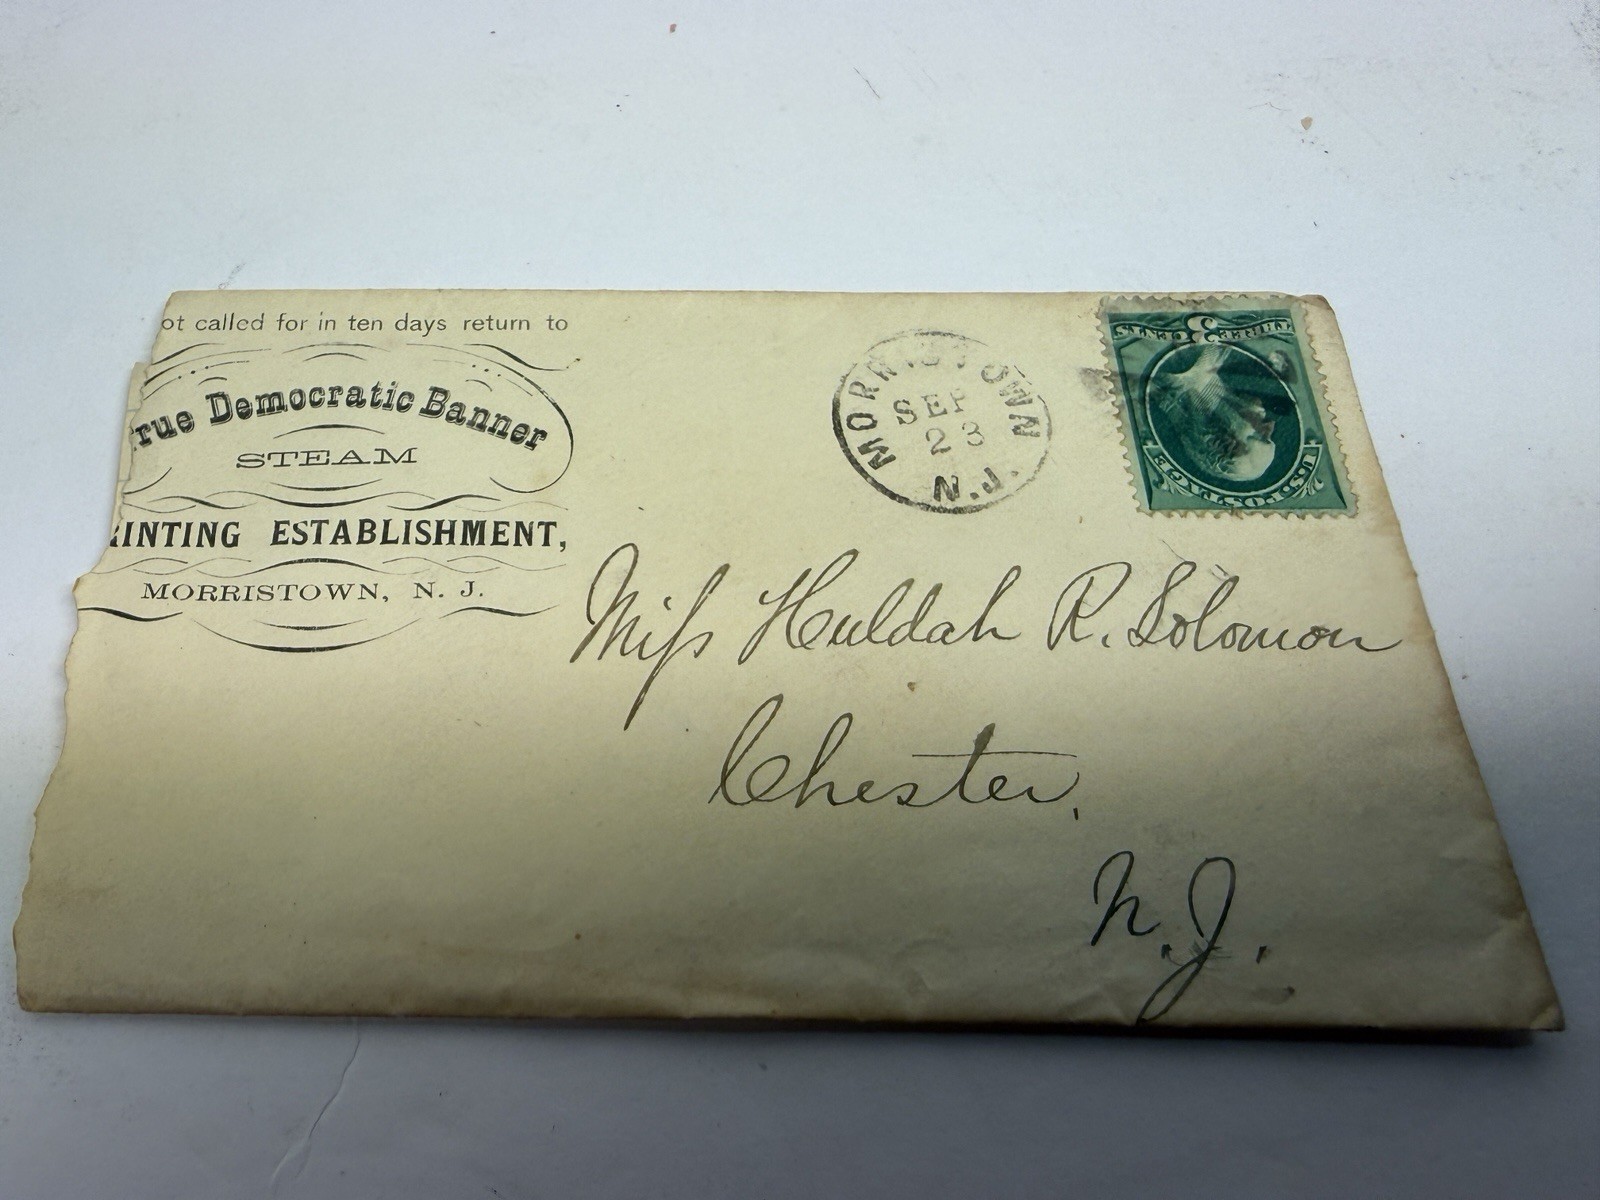 ot called for in ten days return to
rue Democratic Banner
STEAM
INTING ESTABLISHMENT,
MORRISTOWN, N. J.
MORRISTOWN
SEP
23
N.J.
3
U.S. POSTAGE
Miss Huldah R. Solomon
Chester,
N.J.